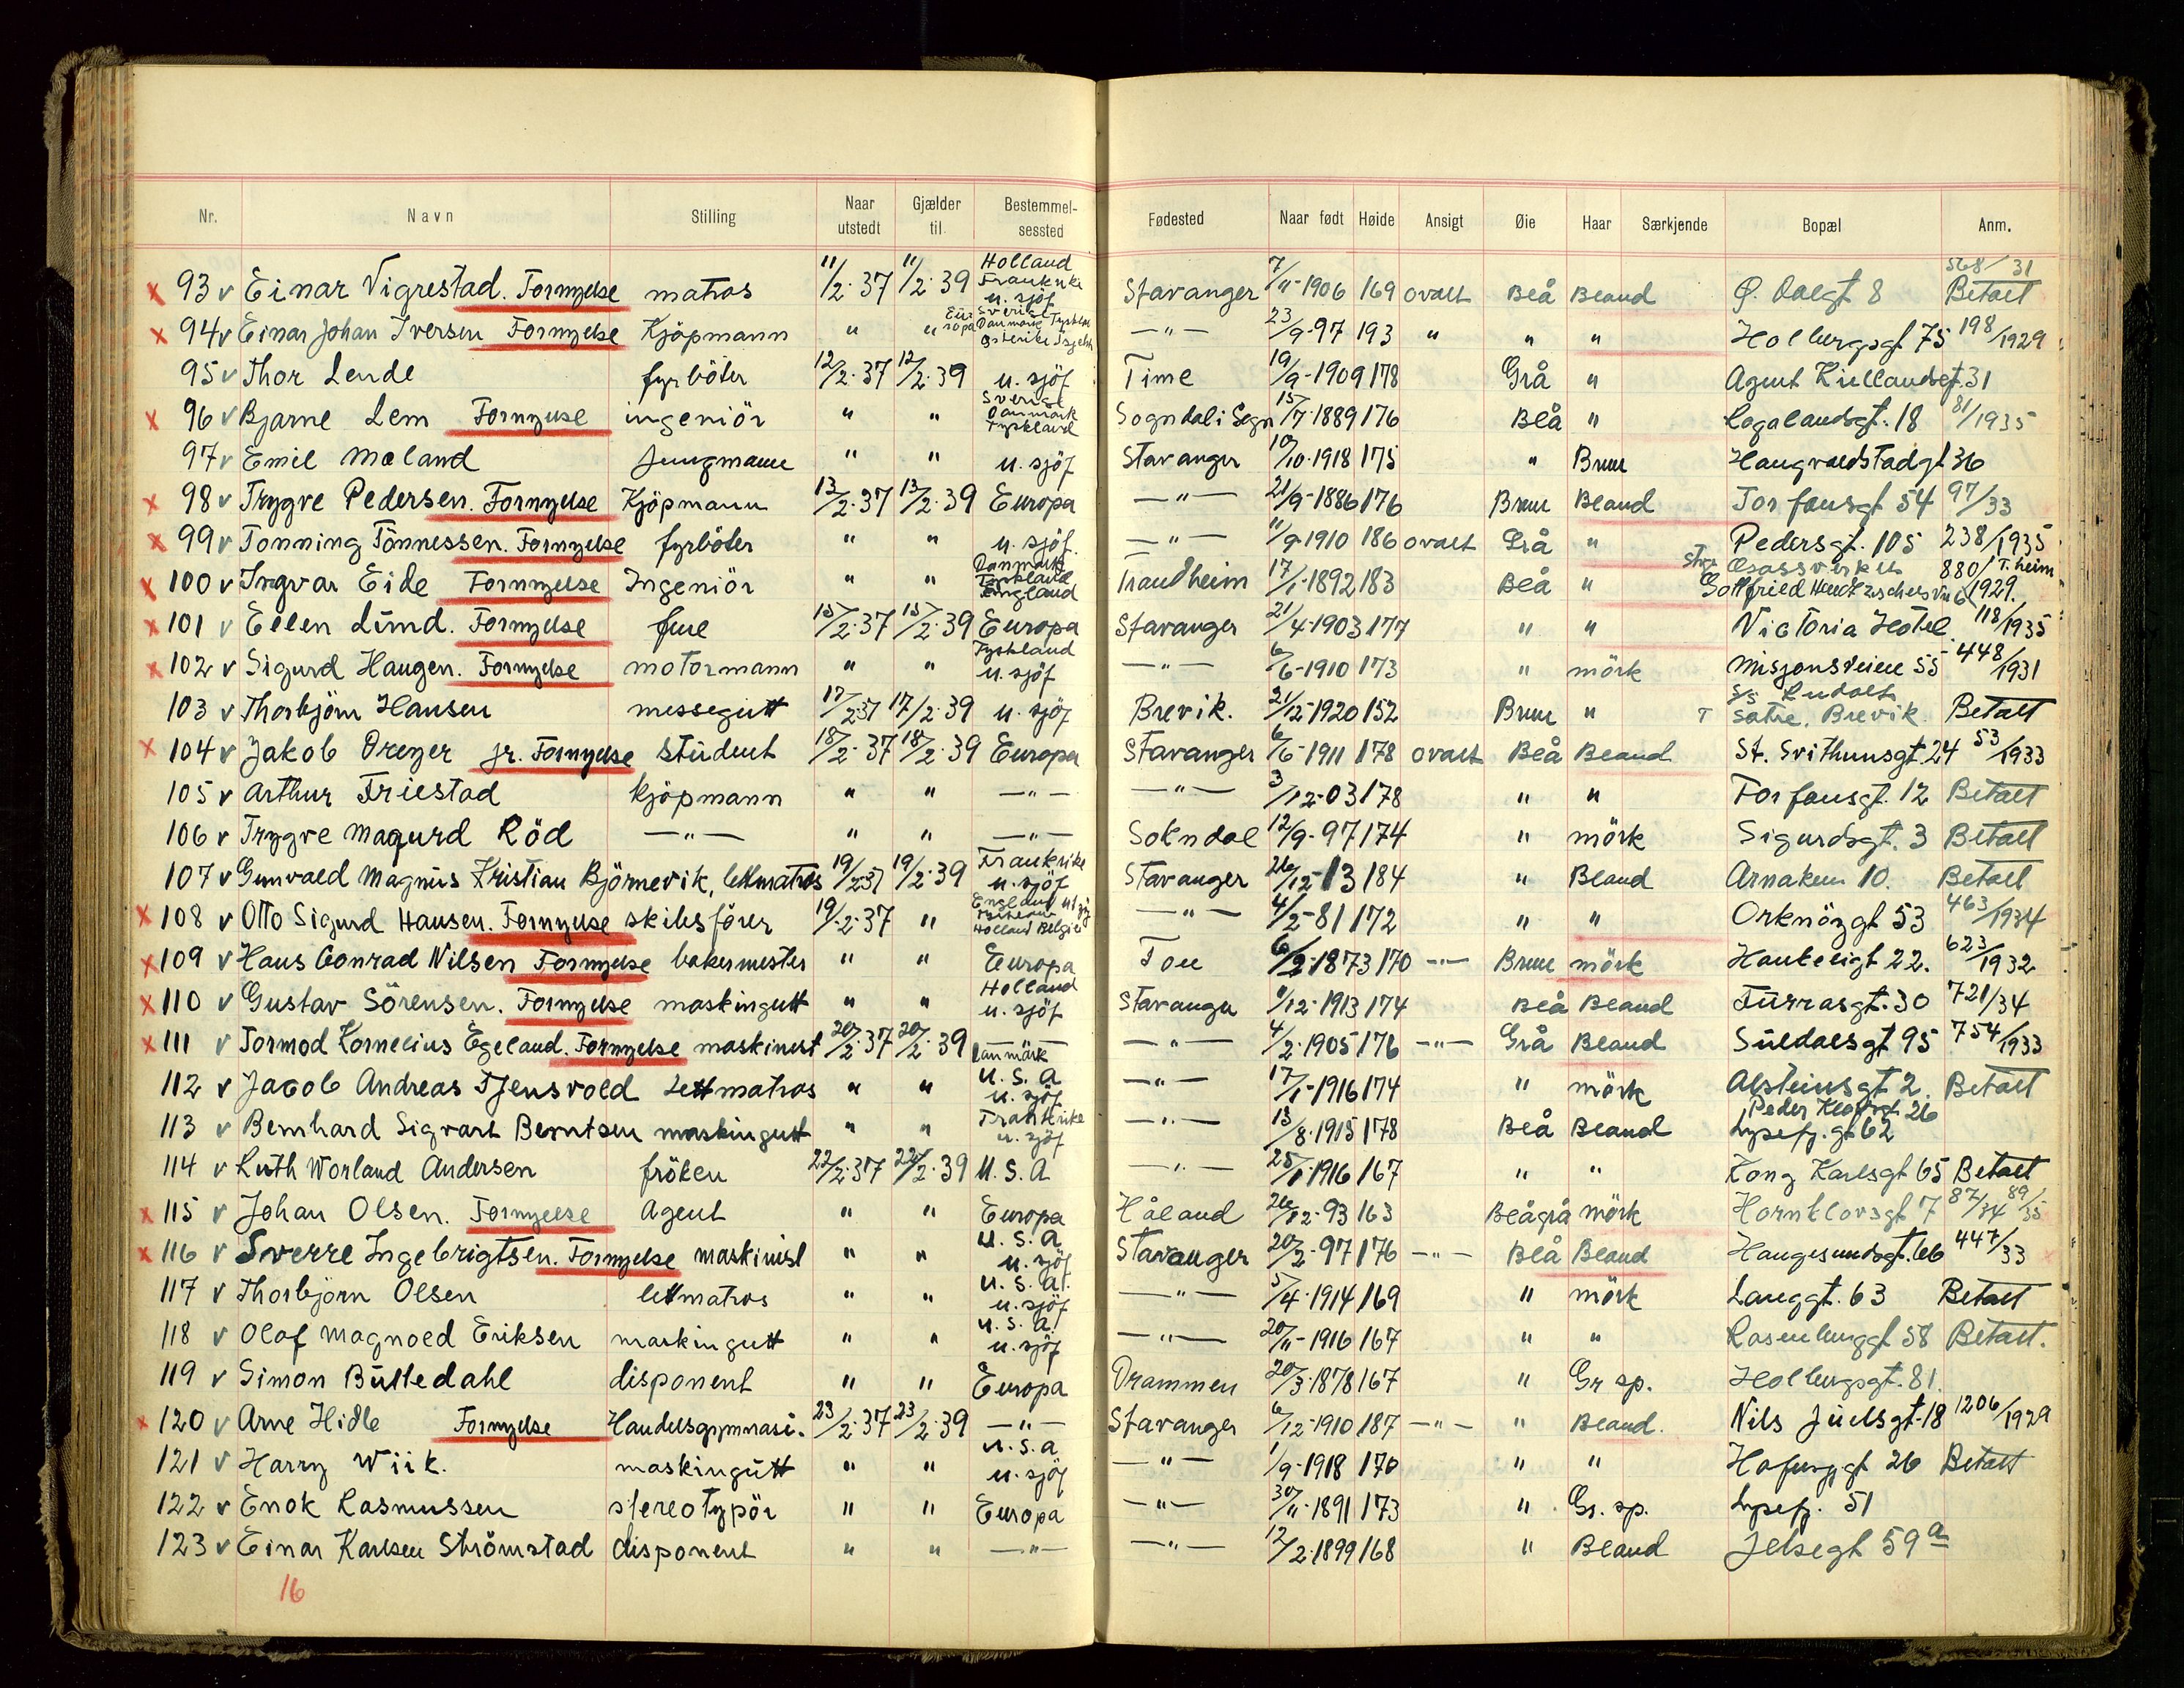 Nr. Navn Stilling Naar utstedt Gjælder til Bestemmelsessted Fødested Naar født Høide Ansigt Øie Haar Særkjende Bopæl Anm.
x 93 v Einar Vigrestad. Fornyelse matros 11/2.37 11/2.39 Holland Frankrike u. sjöf Stavanger 7/11-1906 169 ovalt Blå Blond Ø. Dalgt 8 568/31 Betalt
x 94 v Einar Johan Iversen Fornyelse Kjöpmann " " Europa Sverige Danmark Tyskland —"— 23/9-97 193 " " " Holbergsgt 75 198/1929
95 v Thor Lende fyrböter 12/2.37 12/2.39 u. sjöf Time 19/9-1909 178 Grå " Agent Kiellandsgt. 31
x 96 v Bjarne Lem Fornyelse ingeniör " " Sverige Danmark Tyskland Sogndal i Sogn 15/7-1889 176 Blå " Rogalandsgt. 18 81/1935
97 v Emil Moland Jungmann " " u. sjöf Stavanger 10/10-1918 175 " Brun Haugvaldstadgt 36
x 98 v Trygve Pedersen. Fornyelse Kjöpmann 13/2.37 13/2.39 Europa —"— 21/9-1886 176 Brun Blond Torfæusgt 54 97/33
x 99 v Tonning Tönnessen. Fornyelse fyrböter " " u. sjöf. —"— 11/9-1910 186 ovalt Grå " Pedersgt. 105 238/1935
x 100 v Ingvar Eide Fornyelse Ingeniör " " Danmark Tyskland England Trondheim 17/1-1892 183 Blå " Gottfried 880/T.heim 1929.
x 101 v Ellen Lund. Fornyelse frue 15/2.37 15/2.39 Europa Stavanger 21/4-1903 177 " " Victoria Hotel 118/1935
x 102 v Sigurd Haugen. Fornyelse motormann " " Tyskland u. sjöf —"— 6/6-1910 173 " mörk Misjonsveien 55 448/1931
103 v Thorbjörn Hansen messegutt 17/2.37 17/2.39 u. sjöf Brevik. 21/12-1920 152 Brun " S/S Rudolf Sätre, Brevik Betalt
x 104 v Jakob Dreyer jr. Fornyelse student 18/2.37 18/2.39 Europa Stavanger 6/6-1911 178 ovalt Blå Blond St. Svithunsgt. 24 53/1933
105 v Arthur Friestad kjöpmann " " —"— —"— 3/12-03 178 " " Torfæusgt. 12 Betalt
106 v Trygve Magurd Röd —"— " " —"— Sokndal 12/9-97 174 " mörk Sigurdsgt. 3 Betalt
107 v Gunvald Magnus Kristian Björnevik, lettmatros 19/2.37 19/2.39 Frankrike u. sjöf Stavanger 26/12-13 184 " Blond Arnaken 10. Betalt
x 108 v Otto Sigurd Hansen. Fornyelse skibsförer 19/2.37 " England Holland Belgie —"— 4/2-81 172 " " Orknöygt 53 463/1934
x 109 v Hans Conrad Nilsen Fornyelse bakermester " " Europa Tou 6/2-1873 170 —"— Brun mörk Haukeligt 22. 623/1932
x 110 v Gustav Sörensen. Fornyelse maskingutt " " Holland u. sjöf Stavanger /12-1913 174 Blå Blond Turrasgt. 30 721/34
x 111 v Tormod Kornelius Egeland. Fornyelse maskinist 20/2.37 20/2.39 Danmark —"— 4/2-1905 176 —"— Grå Blond Suldalsgt 95 754/1933
112 v Jacob Andreas Tjensvold Lettmatros " " U.S.A u. sjöf —"— 17/1-1916 174 " mörk Alsteinsgt 2 Betalt
113 v Bernhard Sigvart Berntsen maskingutt " " Frankrike u. sjöf —"— 13/8-1915 178 Blå Blond Peder Klowsgt 26 Lysefj. gt 62
114 v Ruth Worland Andersen fröken 22/2.37 22/2.39 U.S.A —"— 25/1-1916 167 " " Kong Karlsgt 65 Betalt
x 115 v Johan Olsen. Fornyelse Agent " " Europa Håland 26/12-93 163 Blågrå mörk Hornklovsgt 7 87/34 89/35
x 116 v Sverre Ingebrigtsen. Fornyelse maskinist " " U.S.A u. sjöf Stavanger 20/2-97 176 —"— Blå Blond Haugesundsgt. 66 447/33
117 v Thorbjörn Olsen lettmatros " " U.S.A. u. sjöf —"— 5/4-1914 169 " mörk Langgt. 63 Betalt
118 v Olaf Magnold Eriksen maskingutt " " U.S.A. u. sjöf —"— 20/11-1916 167 " " Rosenberggt 58 Betalt.
119 v Simon Bulledahl disponent " " Europa Drammen 20/3-1878 167 " Gr sp. Holbergsgt. 81.
x 120 v Arne Hidle Fornyelse Handelsgymnasi. 23/2.37 23/2.39 —"— Stavanger 6/12-1910 187 —"— " Blond. Nils Juelsgt. 18 1206/1929
121 v Harry Wiik. maskingutt " " U.S.A u. sjöf —"— 1/9-1918 170 " " Hafrsgt 26 Betalt
122 v Enok Rasmussen stereotypör " " Europa —"— 30/11-1891 173 " Gr. sp. Lysefj. 51
123 v Einar Karlsen Strömstad disponent " " —"— —"— 12/2-1899 168 " Blond Jelsegt 59 a
16